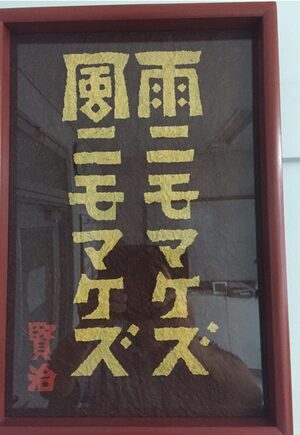 雨ニモマケズ
風ニモマケズ